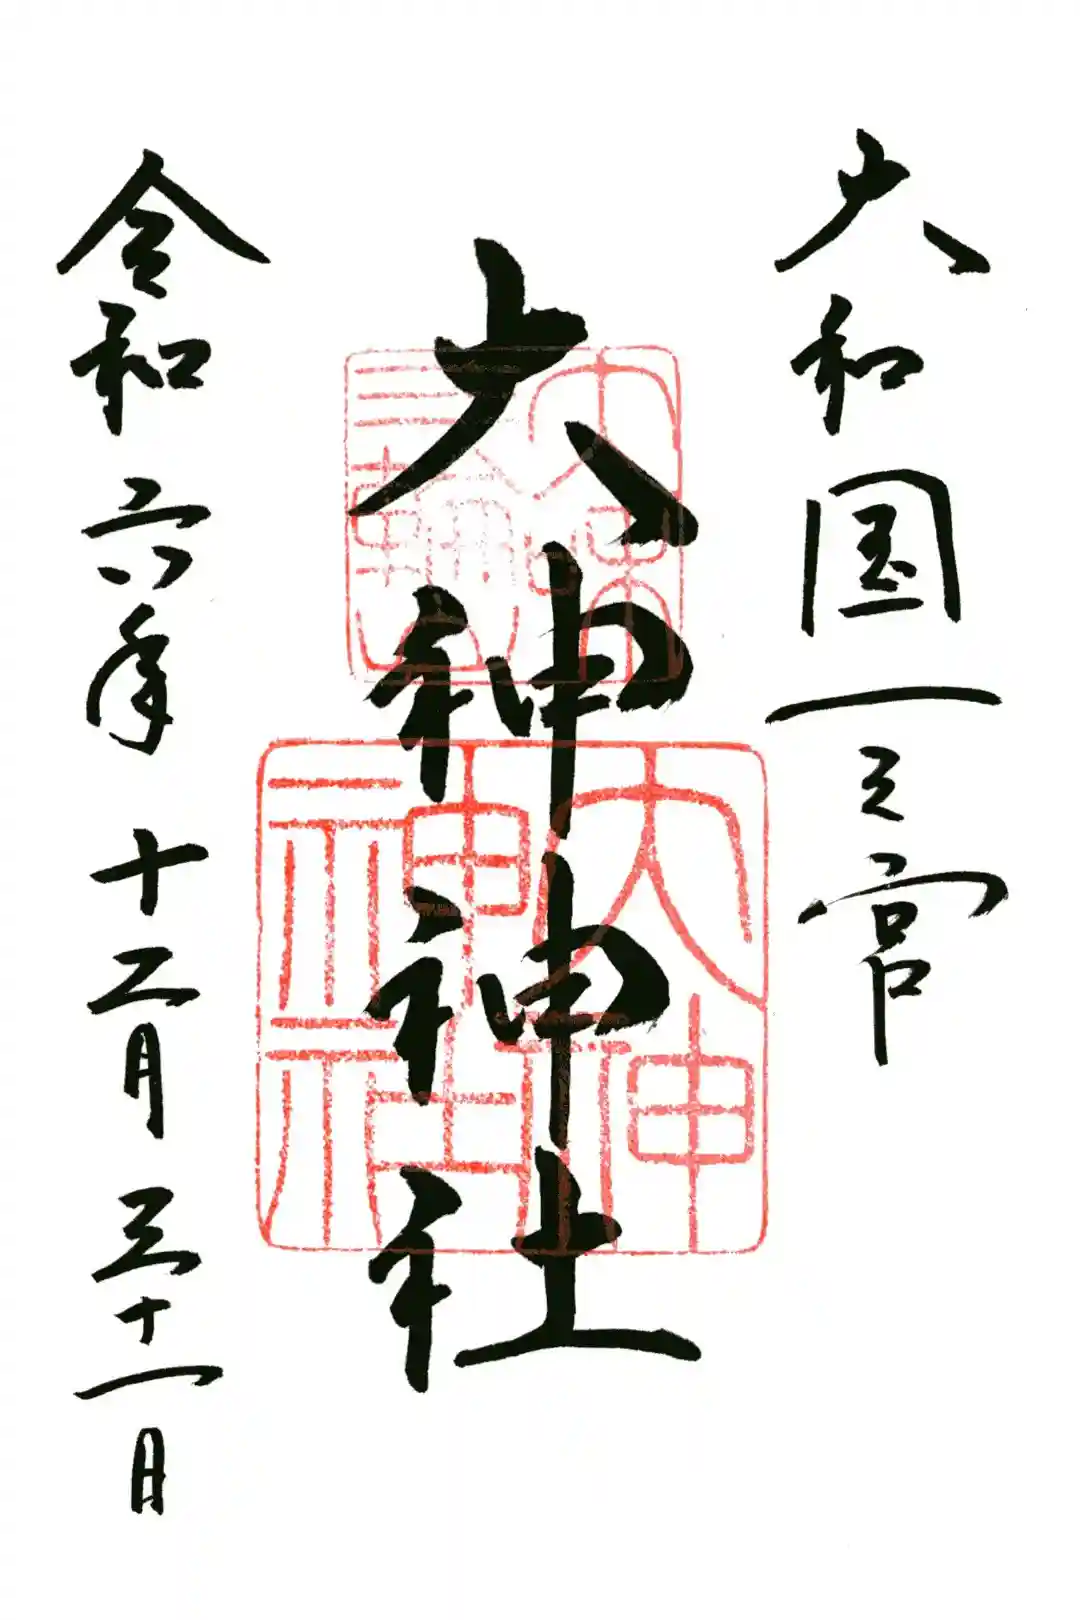 大和国一之宮
大神神社
令和六年十二月三十一日
大神神社